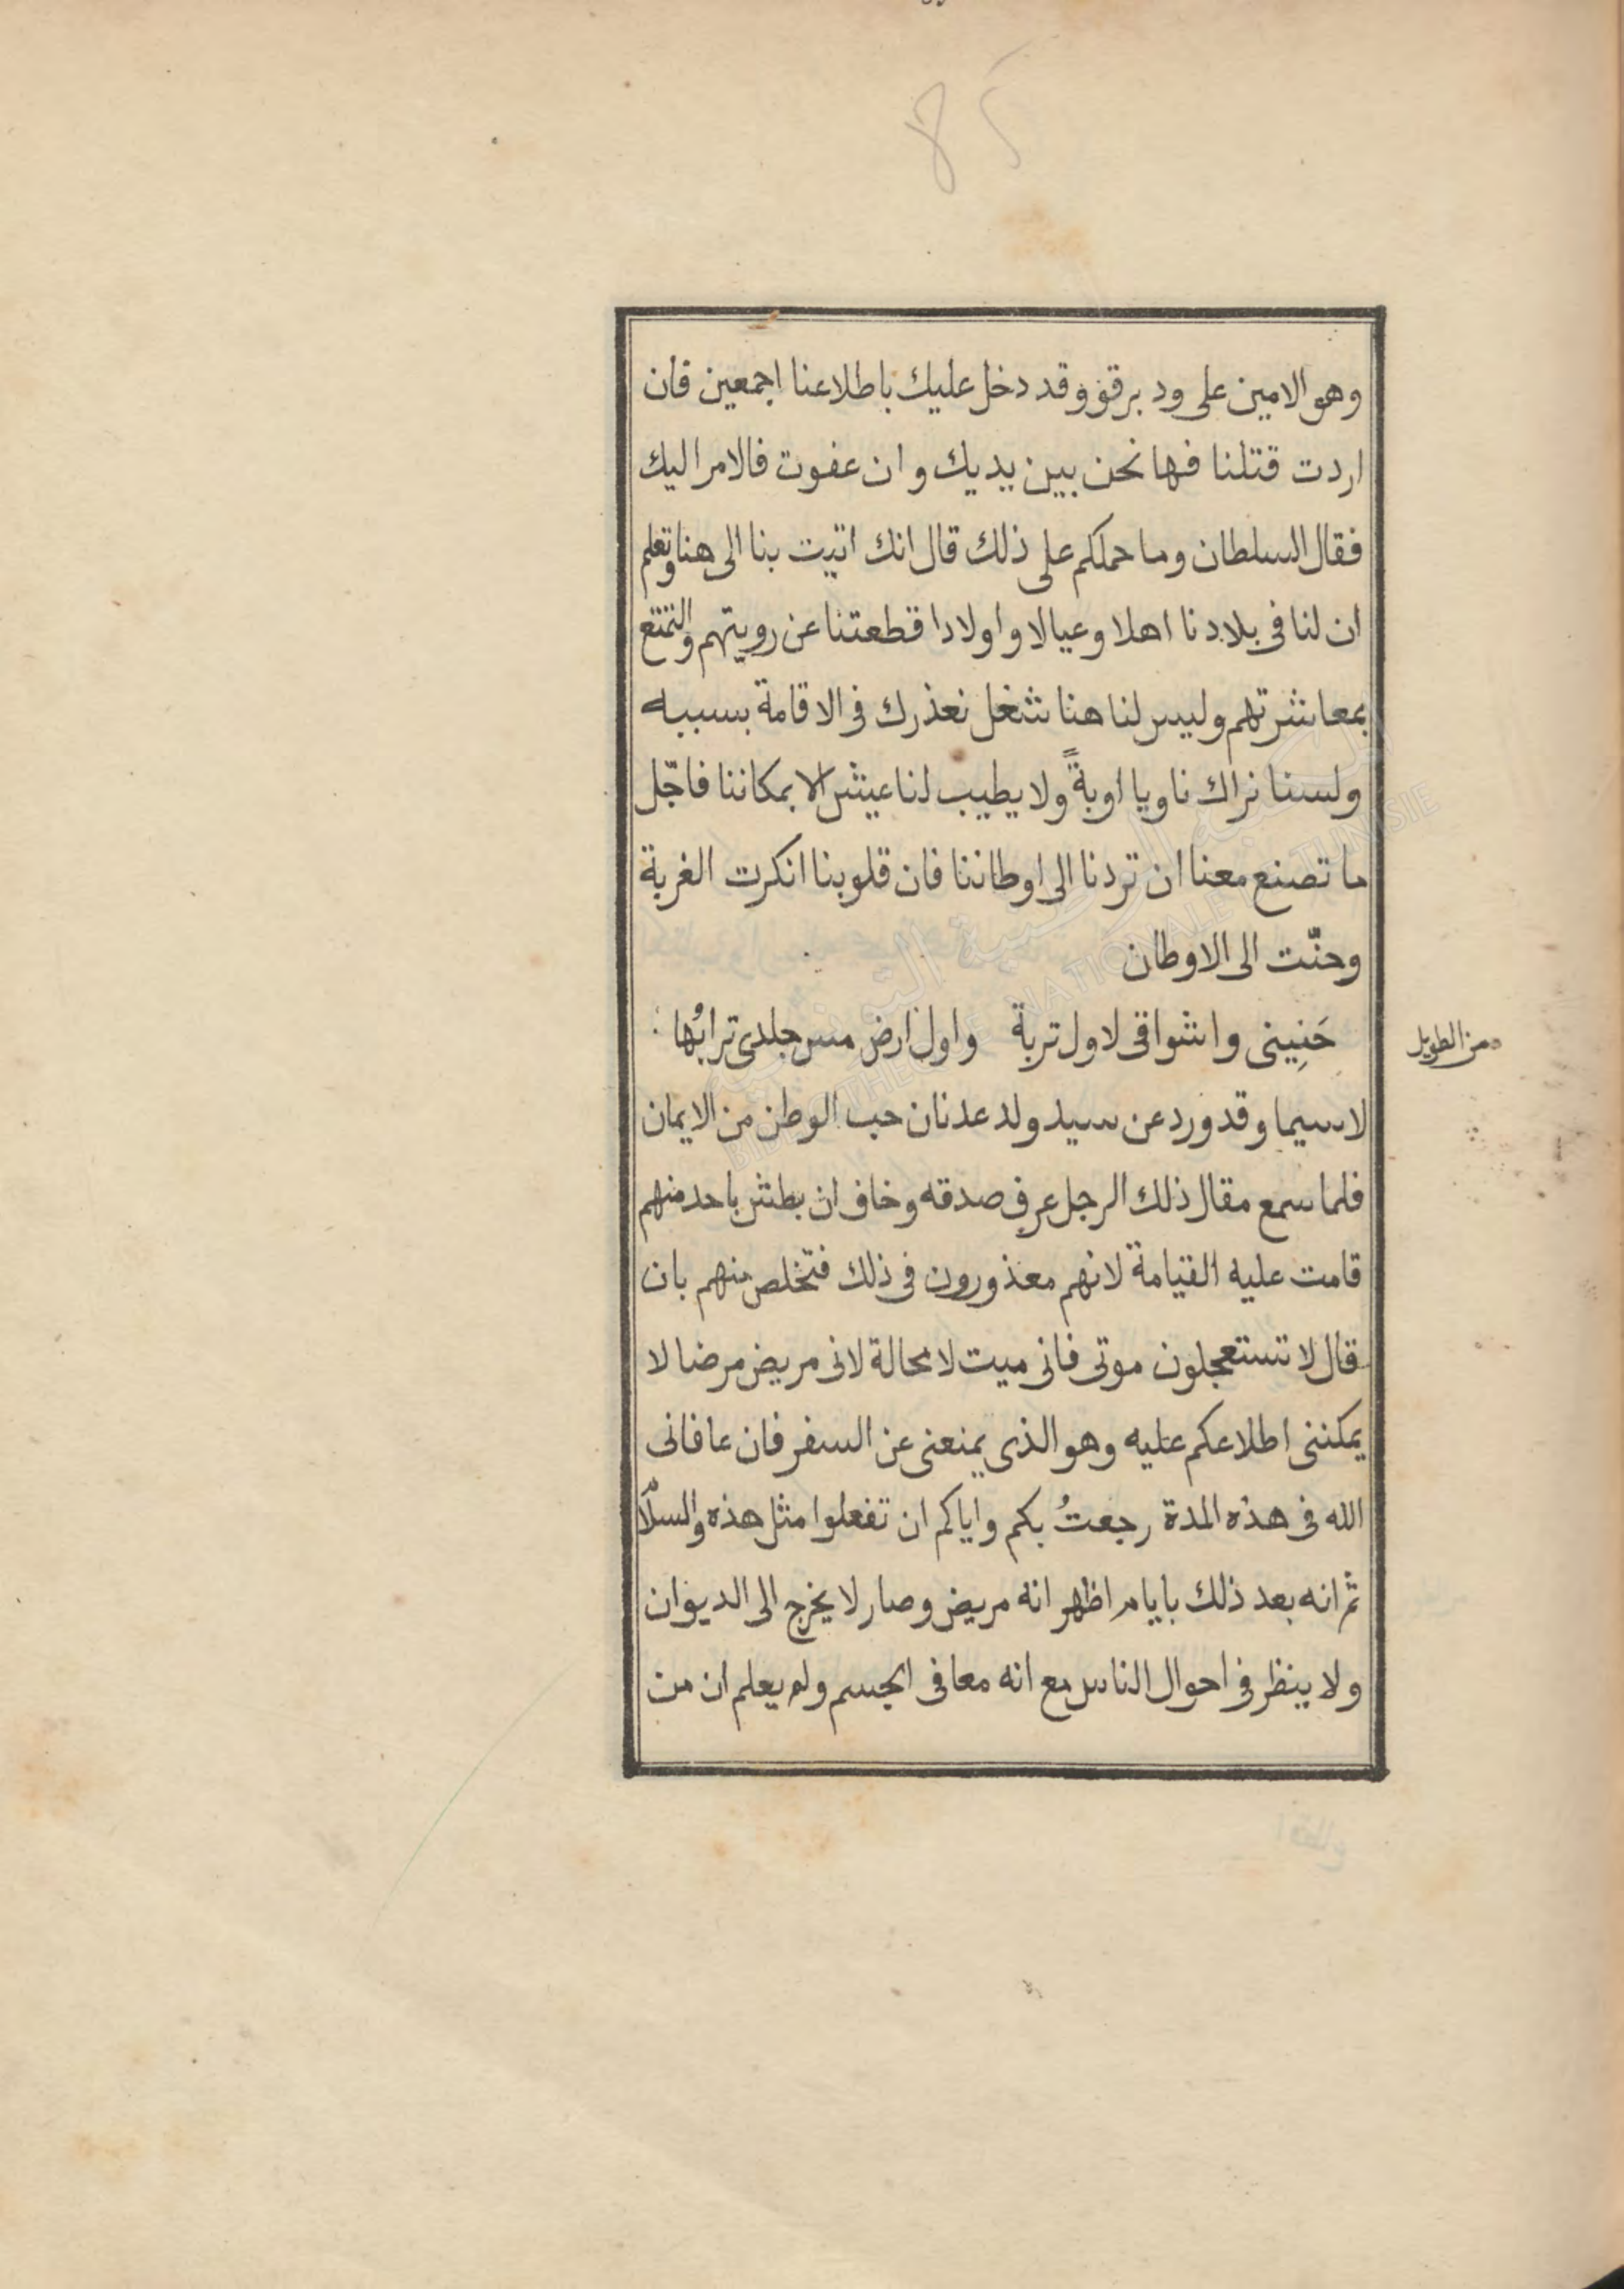 85
وهو الامين على ود برقو وقد دخل عليك باطلاعنا اجمعين فان
اردت قتلنا فها نحن بين يديك و ان عفوت فالامر اليك
فقال السلطان وما حملكم على ذلك قال انك اتيت بنا الى هنا وتعلم
ان لنا فى بلادنا اهلا وعيالا واولادا قطعتنا عن رويتهم والتمتع
بمعاشرتهم وليس لنا هنا شغل نعذرك فى الاقامة بسببه
ولسنا نراك ناويا اوبةً ولا يطيب لنا عيش الا بمكاننا فاجّل
ما تصنع معنا ان تردنا الى اوطاننا فان قلوبنا انكرت الغربة
وحنّت الى الاوطان
من الطويل
حَنِينى واشواقى لاول تربة واول ارض مس جلدى ترابُها
لاسيما وقد ورد عن سيد ولد عدنان حب الوطن من الايمان
فلما سمع مقال ذلك الرجل عرف صدقه وخاف ان بطش باحد منهم
قامت عليه القيامة لانهم معذورون فى ذلك فتخلص منهم بان
قال لا تستعجلون موتى فانى ميت لا محالة لانى مريض مرضا لا
يمكننى اطلاعكم عليه وهو الذى يمنعنى عن السفر فان عافانى
الله فى هذه المدة رجعتُ بكم واياكم ان تفعلوا مثل هذه والسلام
ثم انه بعد ذلك بايام اظهر انه مريض وصار لا يخرج الى الديوان
ولا ينظر فى احوال الناس مع انه معافى الجسم ولم يعلم ان من